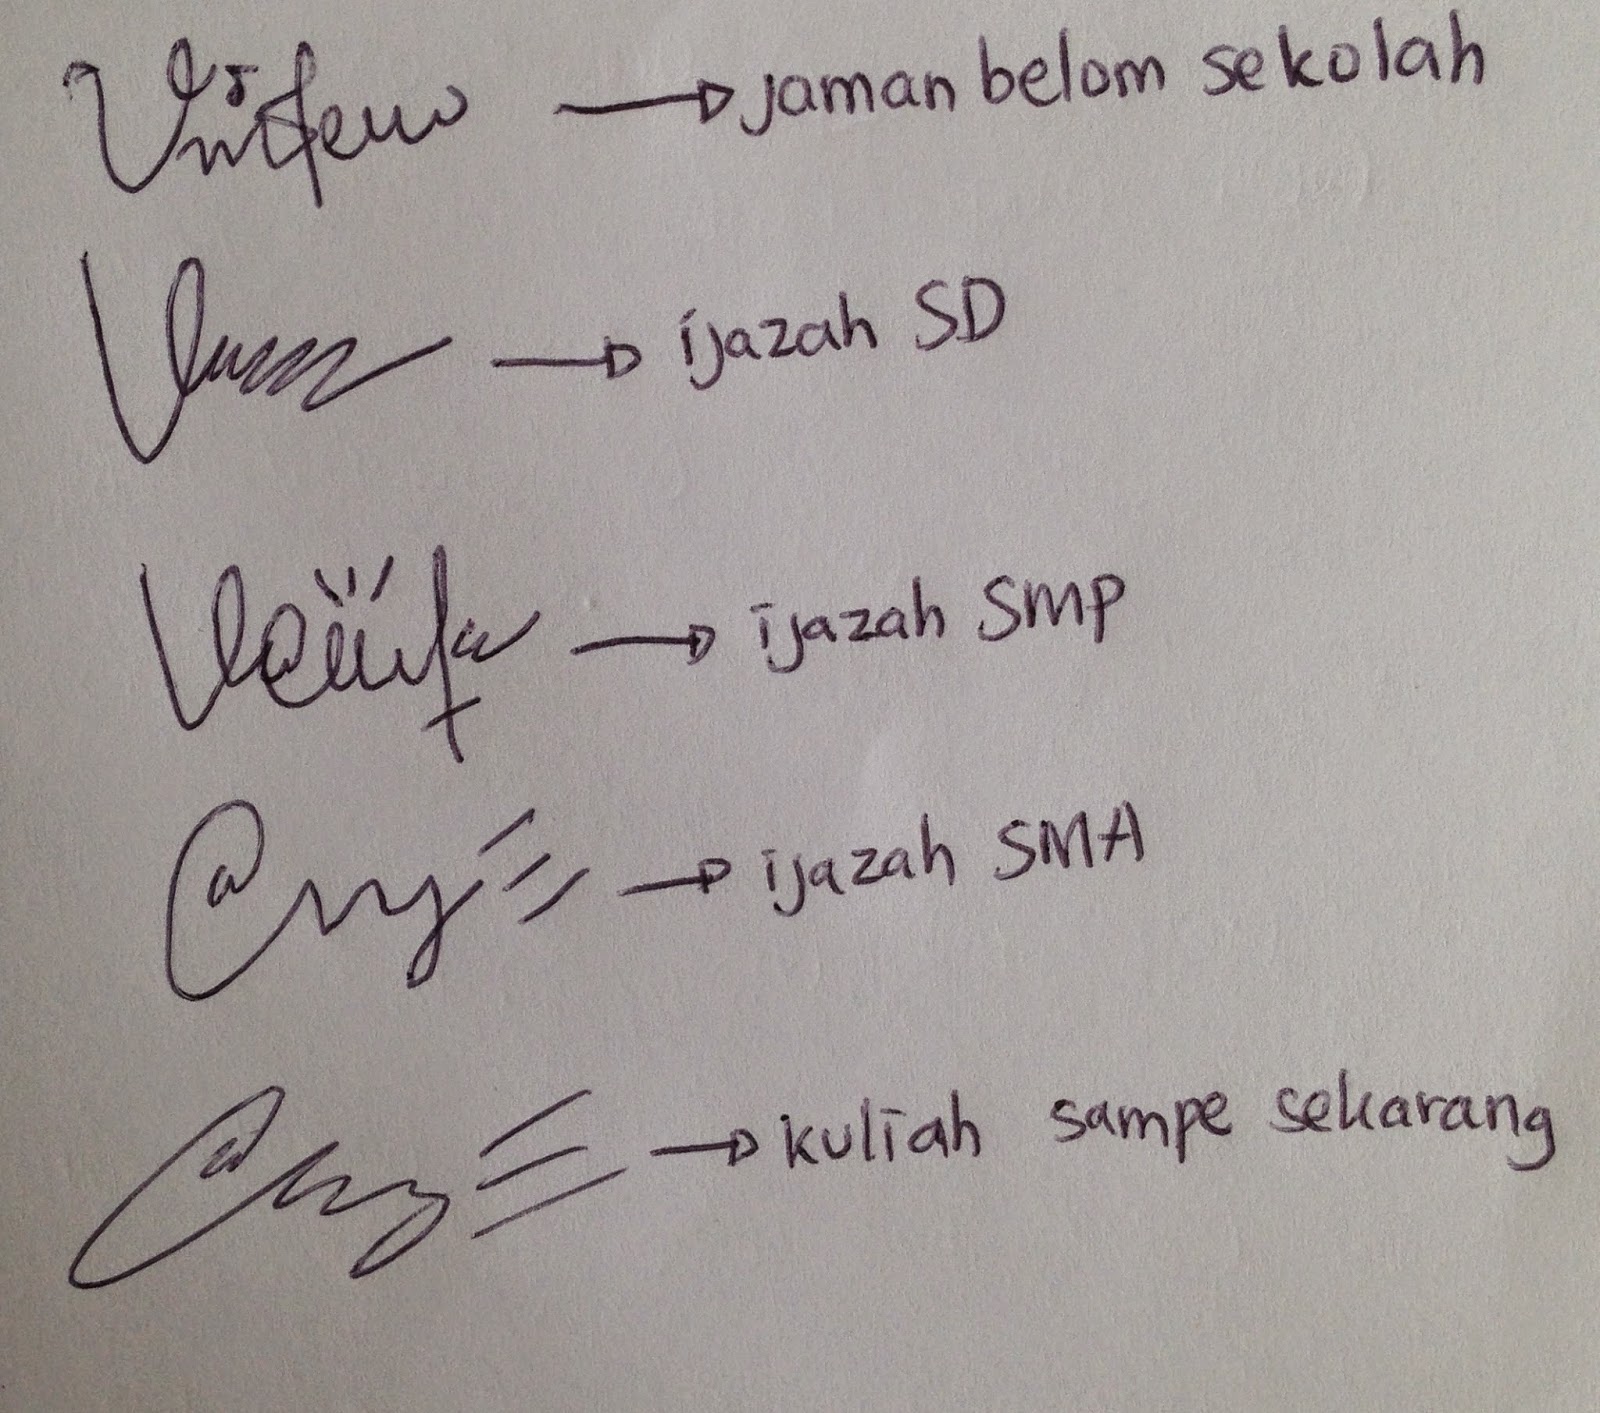 jaman belom sekolah
ijazah SD
ijazah SMP
ijazah SMA
kuliah sampe sekarang